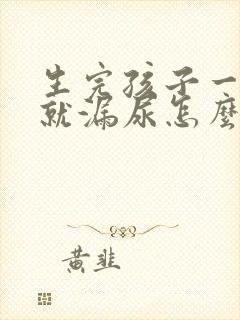 生完孩子一
就漏尿怎麼
黄韭